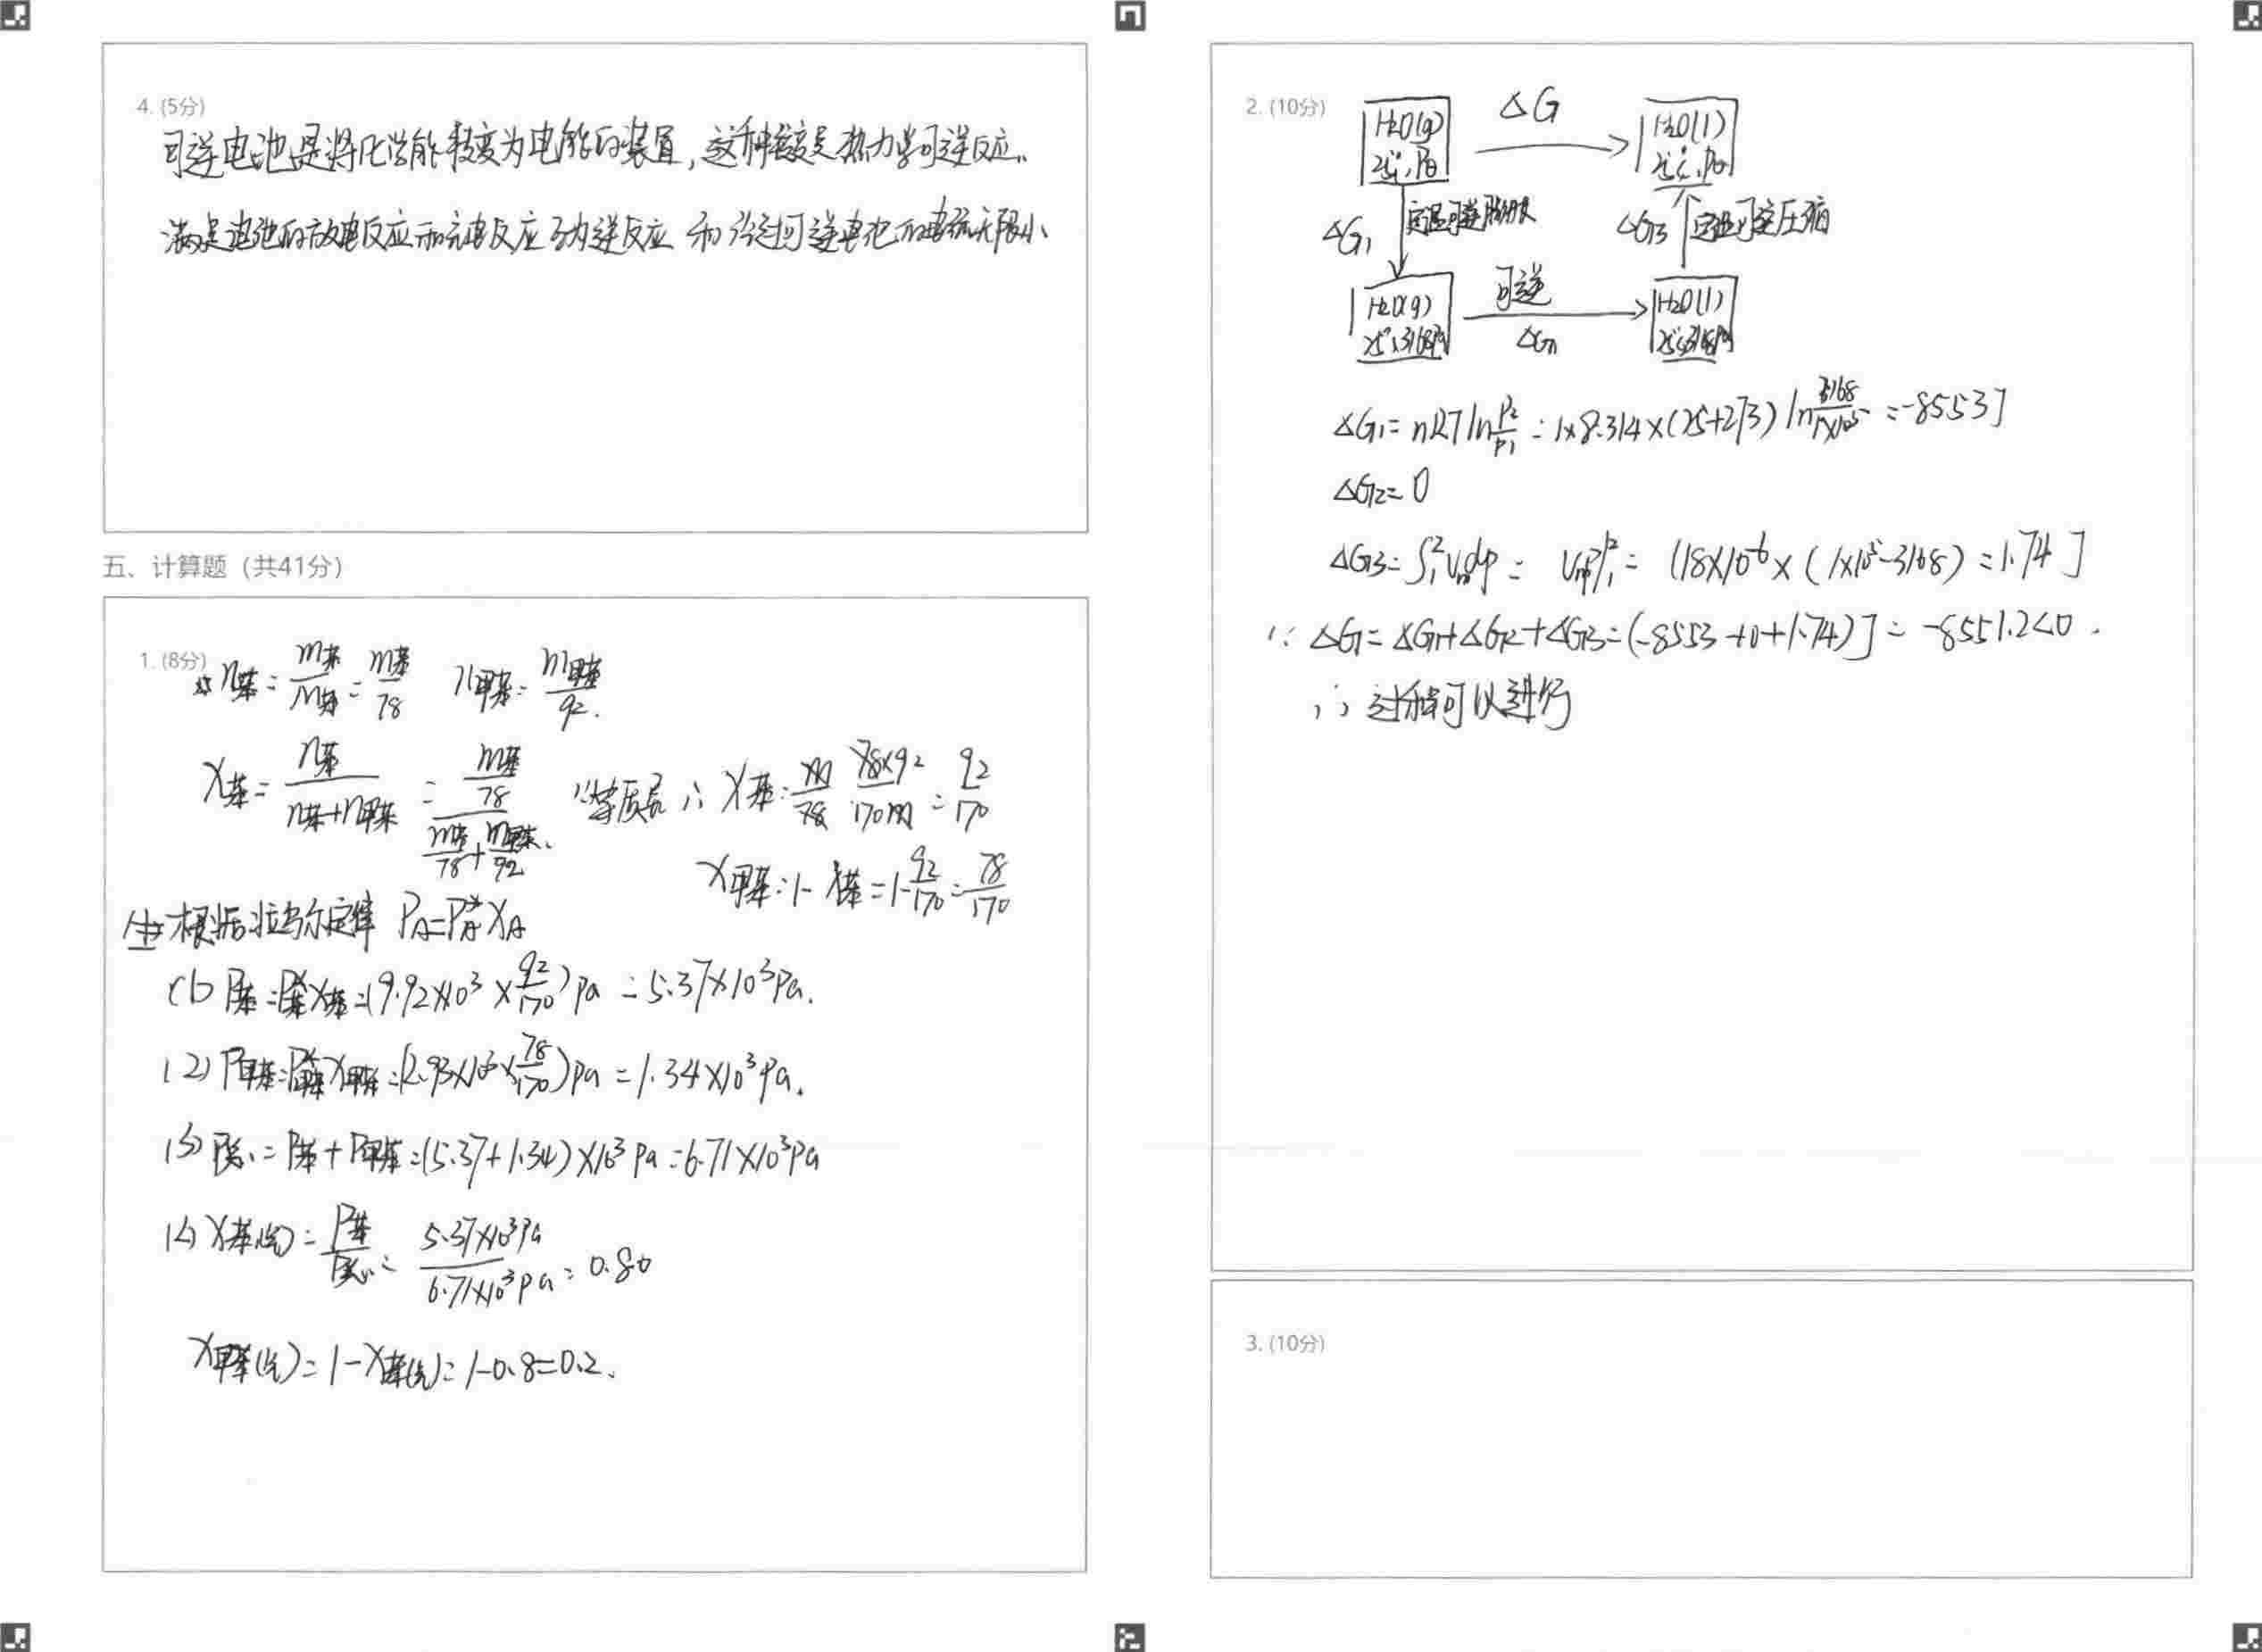 4. (5分)
可逆电池是将化学能转变为电能的装置，这种转变是热力学可逆反应。
满足电池的放电反应和充电反应互为逆反应 和 许过可逆电池的电流无限小
五、计算题（共41分）
1. (8分)
n苯=m苯/M苯=m苯/78 n甲苯=m甲苯/92.
X苯=n苯/(n苯+n甲苯)=(m苯/78)/(m苯/78+m甲苯/92) ∵等质量 ∴X苯=m/78 78×92/170m=92/170
X甲苯=1-X苯=1-92/170=78/170
根据拉乌尔定律 PA=PA*XA
(1) P苯=P苯*X苯=(9.92×10³×92/170)Pa=5.37×10³Pa.
(2) P甲苯=P甲苯*X甲苯=(2.93×10³×78/170)Pa=1.34×10³Pa.
(3) P总=P苯+P甲苯=(5.37+1.34)×10³Pa=6.71×10³Pa
(4) X苯(气)=P苯/P总=5.37×10³Pa/6.71×10³Pa=0.80
X甲苯(气)=1-X苯(气)=1-0.8=0.2.
2. (10分)
H2O(g) 25℃, Pθ ΔG H2O(l) 25℃, Pθ
ΔG1 定温可逆膨胀 ΔG3 定温可逆压缩
H2O(g) 25℃, 3168Pa 可逆 ΔG2 H2O(l) 25℃, 3168Pa
ΔG1=nRTln P2/P1=1×8.314×(25+273)ln 3168/1×10⁵=-8553J
ΔG2=0
ΔG3=∫₁²Vmdp=VmP|₁²=(18×10⁻⁶×(1×10⁵-3168)=1.74J
∵ ΔG=ΔG1+ΔG2+ΔG3=(-8553+0+1.74)J=-8551.2<0.
∴ 过程可以进行
3. (10分)